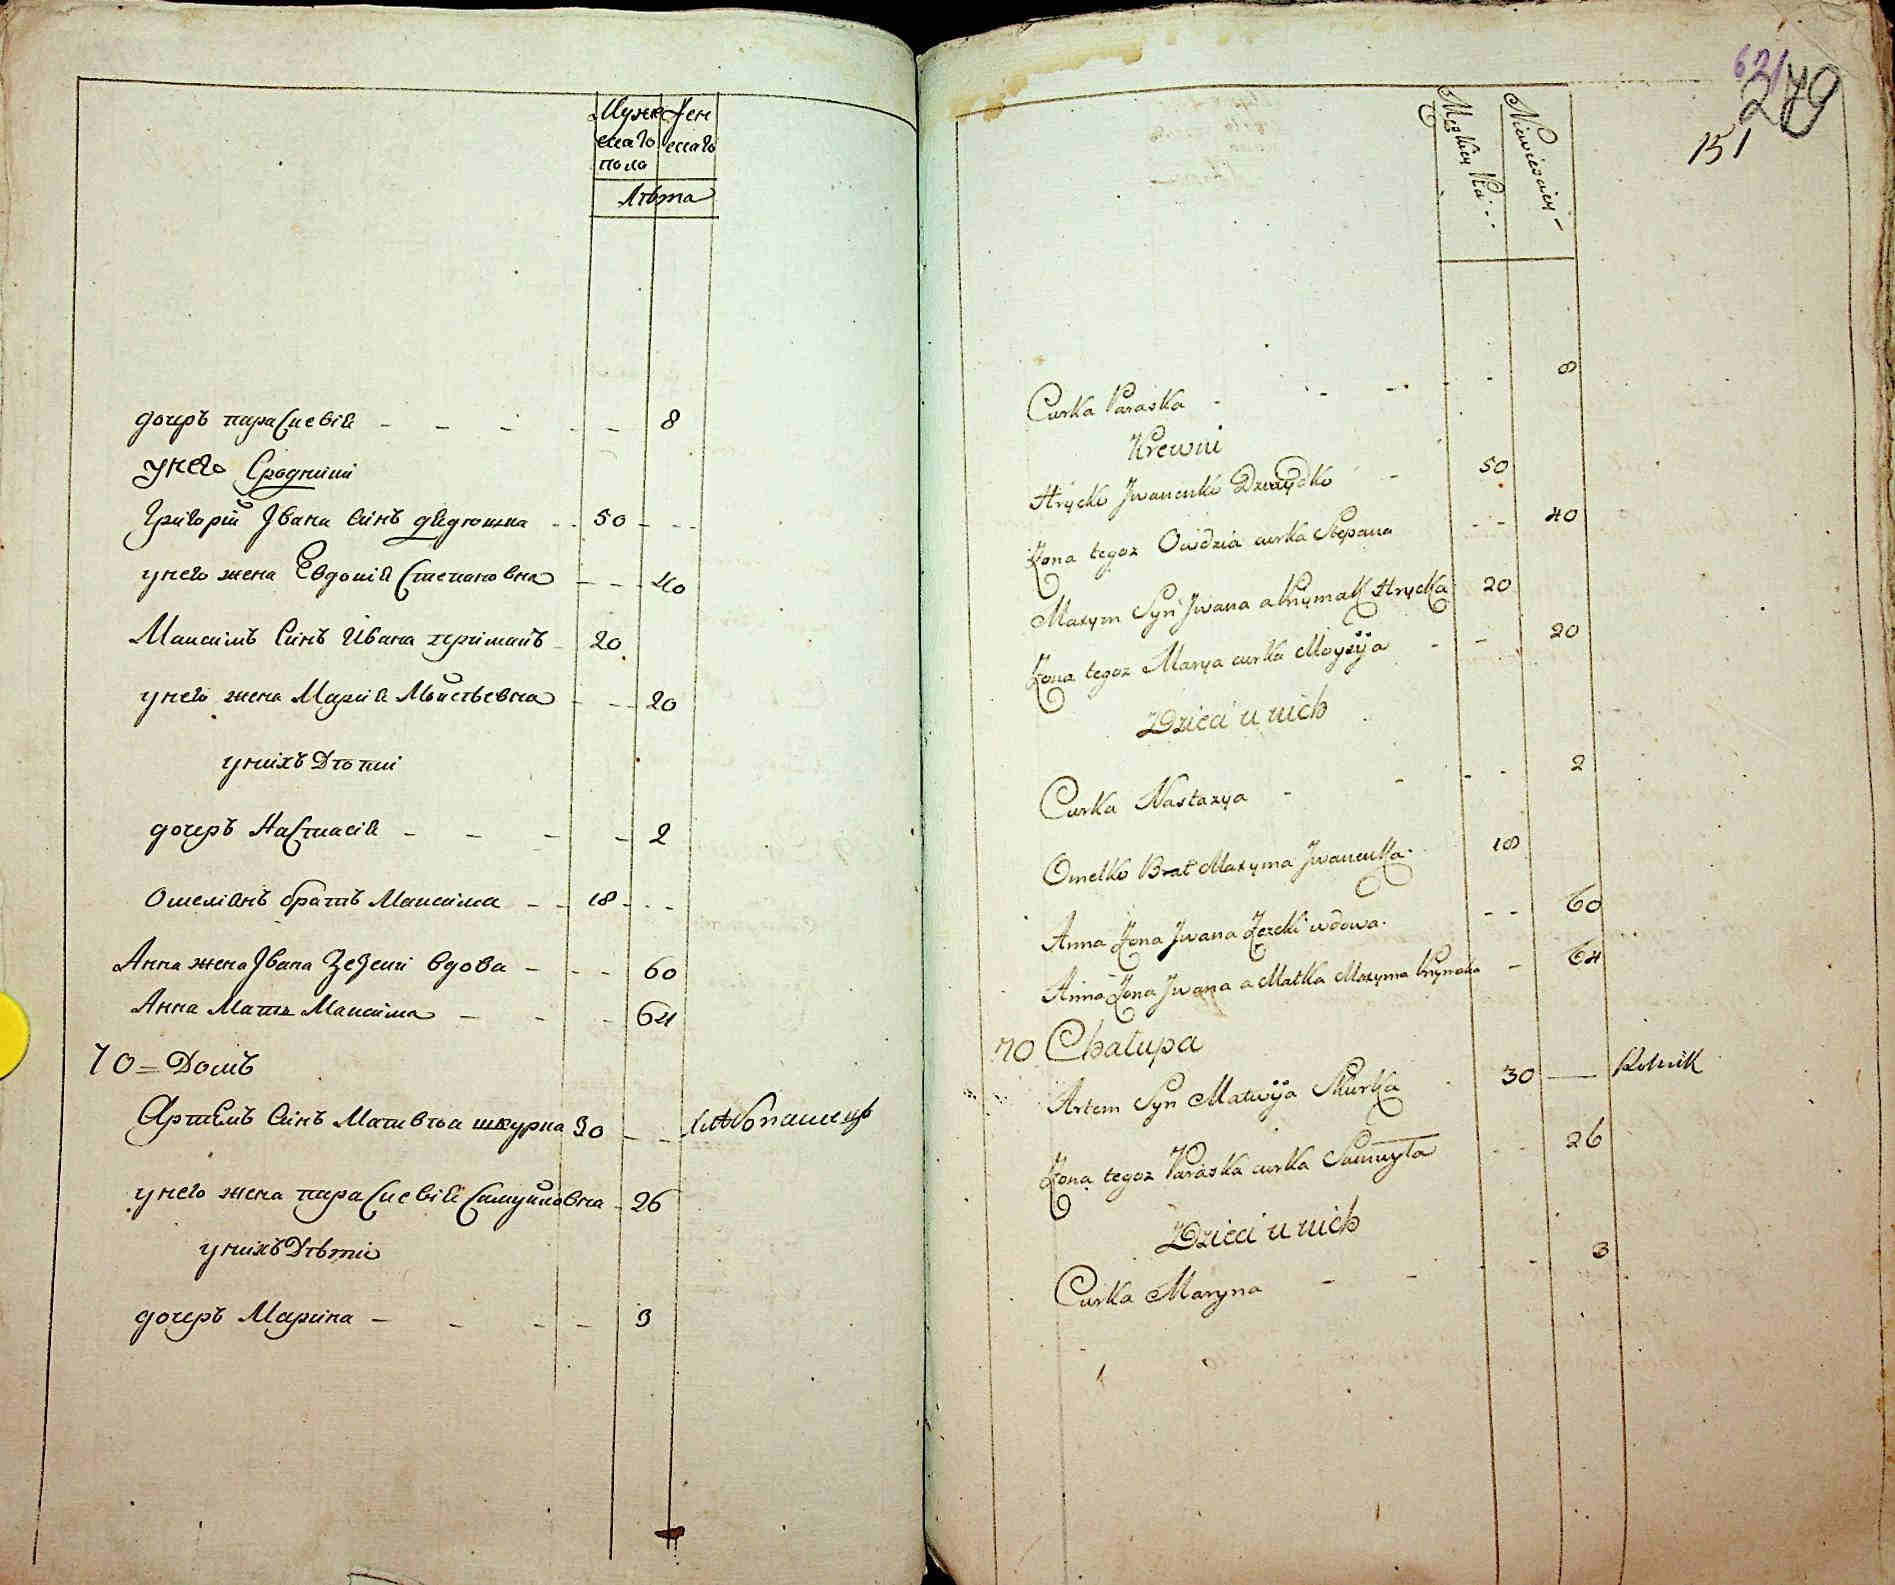 Мужескаго пола
Женскаго
Лѣта
дочеръ параскевія - - - - - 8
унего Сродники
Григорій Ивана Синъ дѣдюшка - - 50 - - -
унего жена Евдокія Степановна - - - 40
Максимъ Синъ Ивана приймакъ - 20
унего жена Марія Мойсѣевна - - - 20
унихъ Дѣтки
дочеръ Настасія - - - - 2
Омеліянъ братъ Максима - - 18 - - -
Анна жена Ивана Зезеки вдова - - - 60
Анна Матъ Максима - - - 64
70 = Домъ
Артемъ Синъ Матвѣя шкурка 30 - - хлѣбопашецъ
унего жена параскевія Самуйловна - 26
унихъ Дѣтки
дочеръ Марина - - - - 3
62/
279
151
Męzkiey Płci
Niewiesciey
Curka Paraska - - - - - 8
Krewni
Hrycko Jwanenko - 50
Zona tegoz Owdzia curka Stepana - - 40
Maxym Syn Jwana a Prymak Hrycka 20
Zona tegoz Marya curka Moyzyja - - 20
Dzieci u nich
Curka Nastazya - - - - 2
Omelko Brat Maxyma Jwanenka 18
Anna Zona Jwana Zezeki wdowa - - 60
Anna Zona Jwana a Matka Maxyma Prymaka - 64
70 Chałupa
Artem Syn Matwija Skurka - 30 — Rolnik
Zona tegoz Paraska curka Samuyła - - 26
Dzieci u nich
Curka Maryna - - - - 3